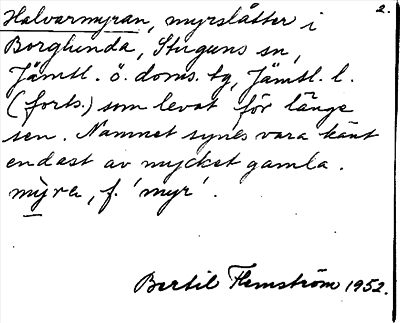 2.
Halvarmyran, myrslåtter i
Borglunda, Stuguns sn,
Jämtl. ö. doms. tg, Jämtl. l.
(forts.) som levat för länge
sen. Namnet synes vara känt
endast av mycket gamla.
myra, f. 'myr'.
Bertil Flemström 1952.